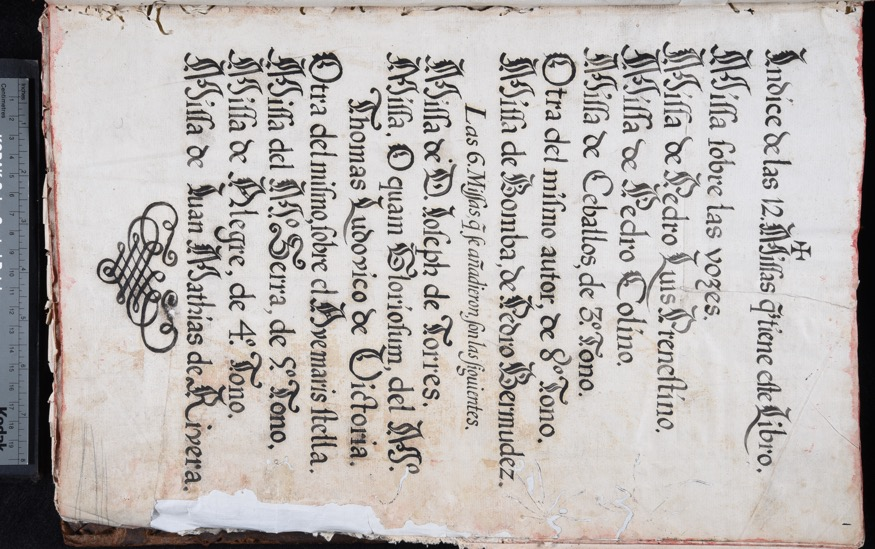 ✠
Indice de las 12. Missas q̃ tiene este Libro.
Missa sobre las vozes.
Missa de Pedro Luis Prenestino.
Missa de Pedro Colino.
Missa de Ceballos, de 3º Tono.
Otra del mismo autor, de 8º Tono.
Missa de Bomba, de Pedro Bermudez.
Las 6. Missas q̃ se añadieron son las siguientes.
Missa de D. Joseph de Torres.
Missa, O quam Gloriosum, del Mº.
Thomas Ludovico de Victoria.
Otra del mismo, sobre el Ave maris stella.
Missa del Mº. Serra, de 5º Tono.
Missa de Alegre, de 4º Tono.
Missa de Iuan Mathias de Rivera.
Kodak
Centimetres
Inches